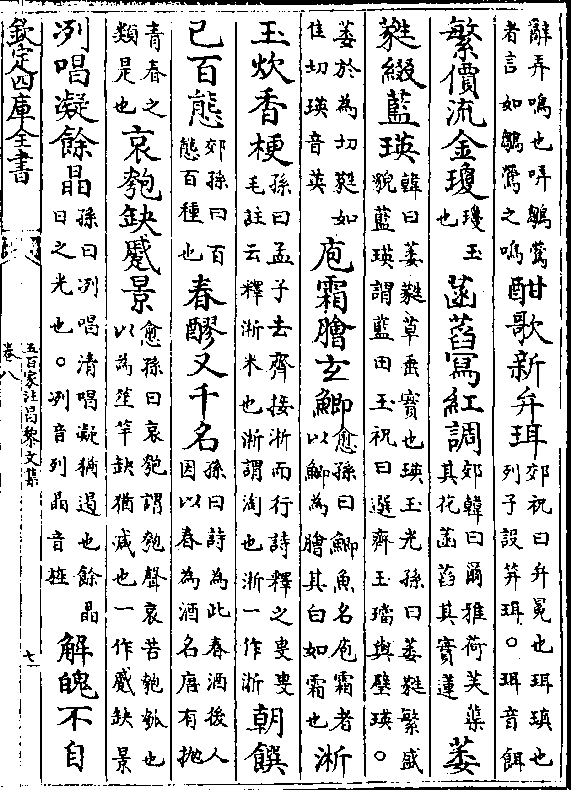 辭弄鳴也哢鸝鶯
者言如鸝鶯之鳴
酣歌新弁珥
郊祝曰弁冕也珥瑱也
列子設笄珥。珥音餌
繁價流金瓊
瓊玉
也
菡萏寫紅調
郊韓曰爾雅荷芙蕖
其花菡萏其實蓮
萎
蕤綴藍瑛
韓曰萎蕤草垂實也瑛玉光孫曰萎蕤繁盛
貌藍瑛謂藍田玉祝曰選齊玉璫與璧瑛。
萎於為切蕤如
佳切瑛音英
庖霜膾玄鯽
愈孫曰鯽魚名庖霜者
以鯽為膾其白如霜也
淅
玉炊香粳
孫曰孟子去齊接淅而行詩釋之叟叟
毛註云釋淅米也淅謂淘也淅一作淅
朝饌
已百態
郊孫曰百
態百種也
春醪又千名
孫曰詩為此春酒後人
因以春為酒名唐有抛
青春之
類是也
哀匏缺蹙景
愈孫曰哀匏謂匏聲哀苦匏瓠也
以為笙竽缺猶減也一作蹙缺景
冽唱凝餘晶
孫曰冽唱清唱凝猶遏也餘晶
日之光也。冽音列晶音旌
解魄不自
欽定四庫全書
五百家註昌黎文集
卷八
七